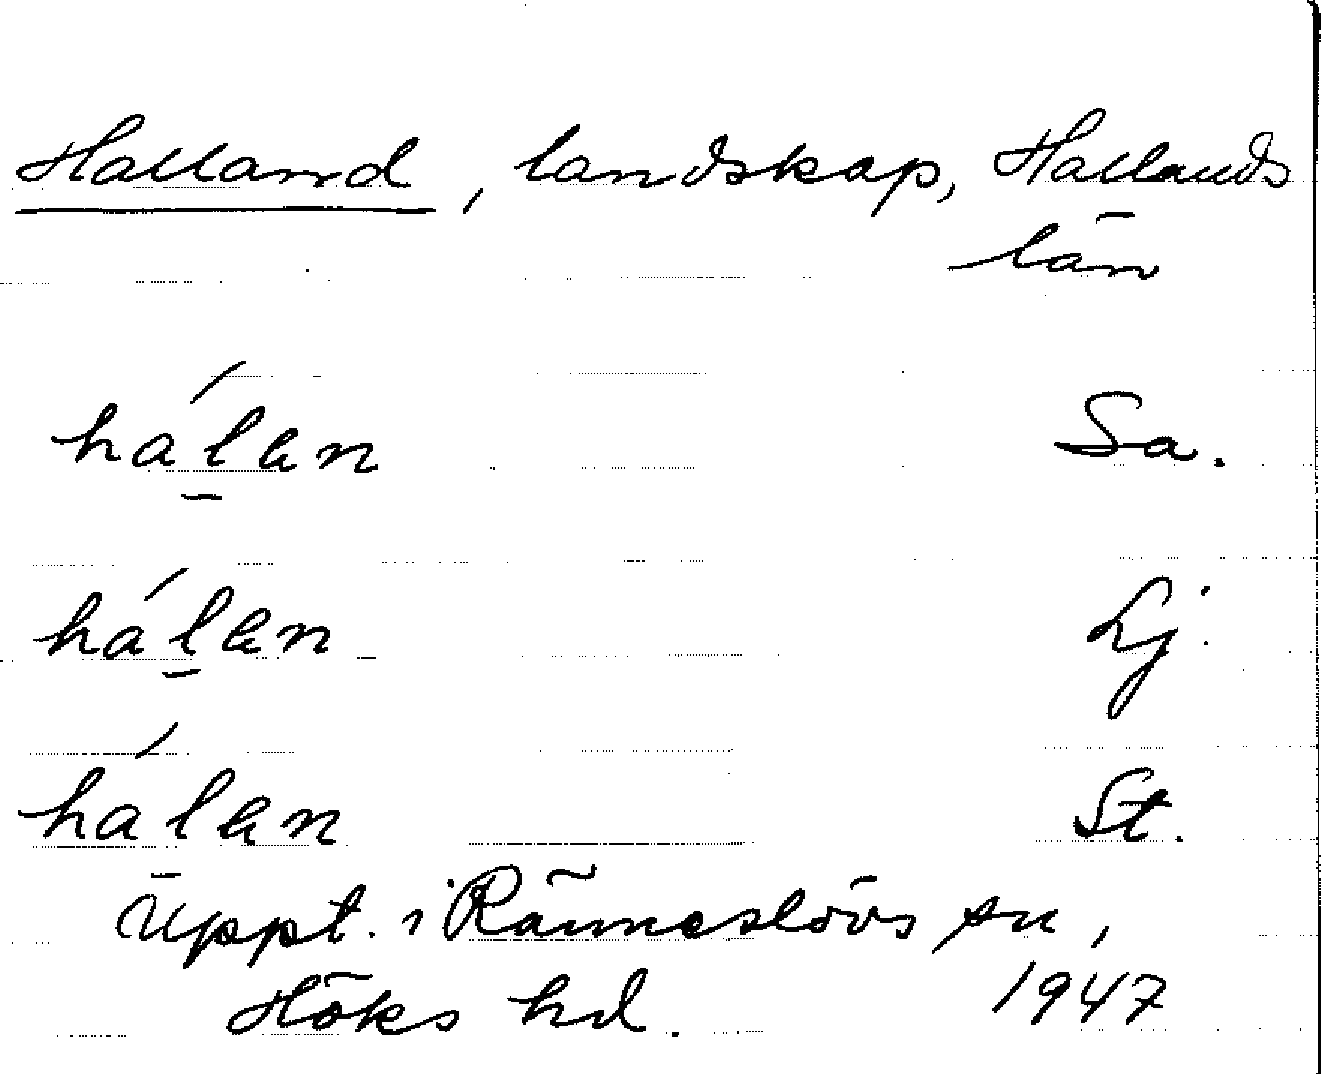 Halland, landskap, Hallands
län
hál̠an Sa.
hál̠an Lj.
hál̠an St.
Uppt. i Ränneslövs sn,
Höks hd. 1947